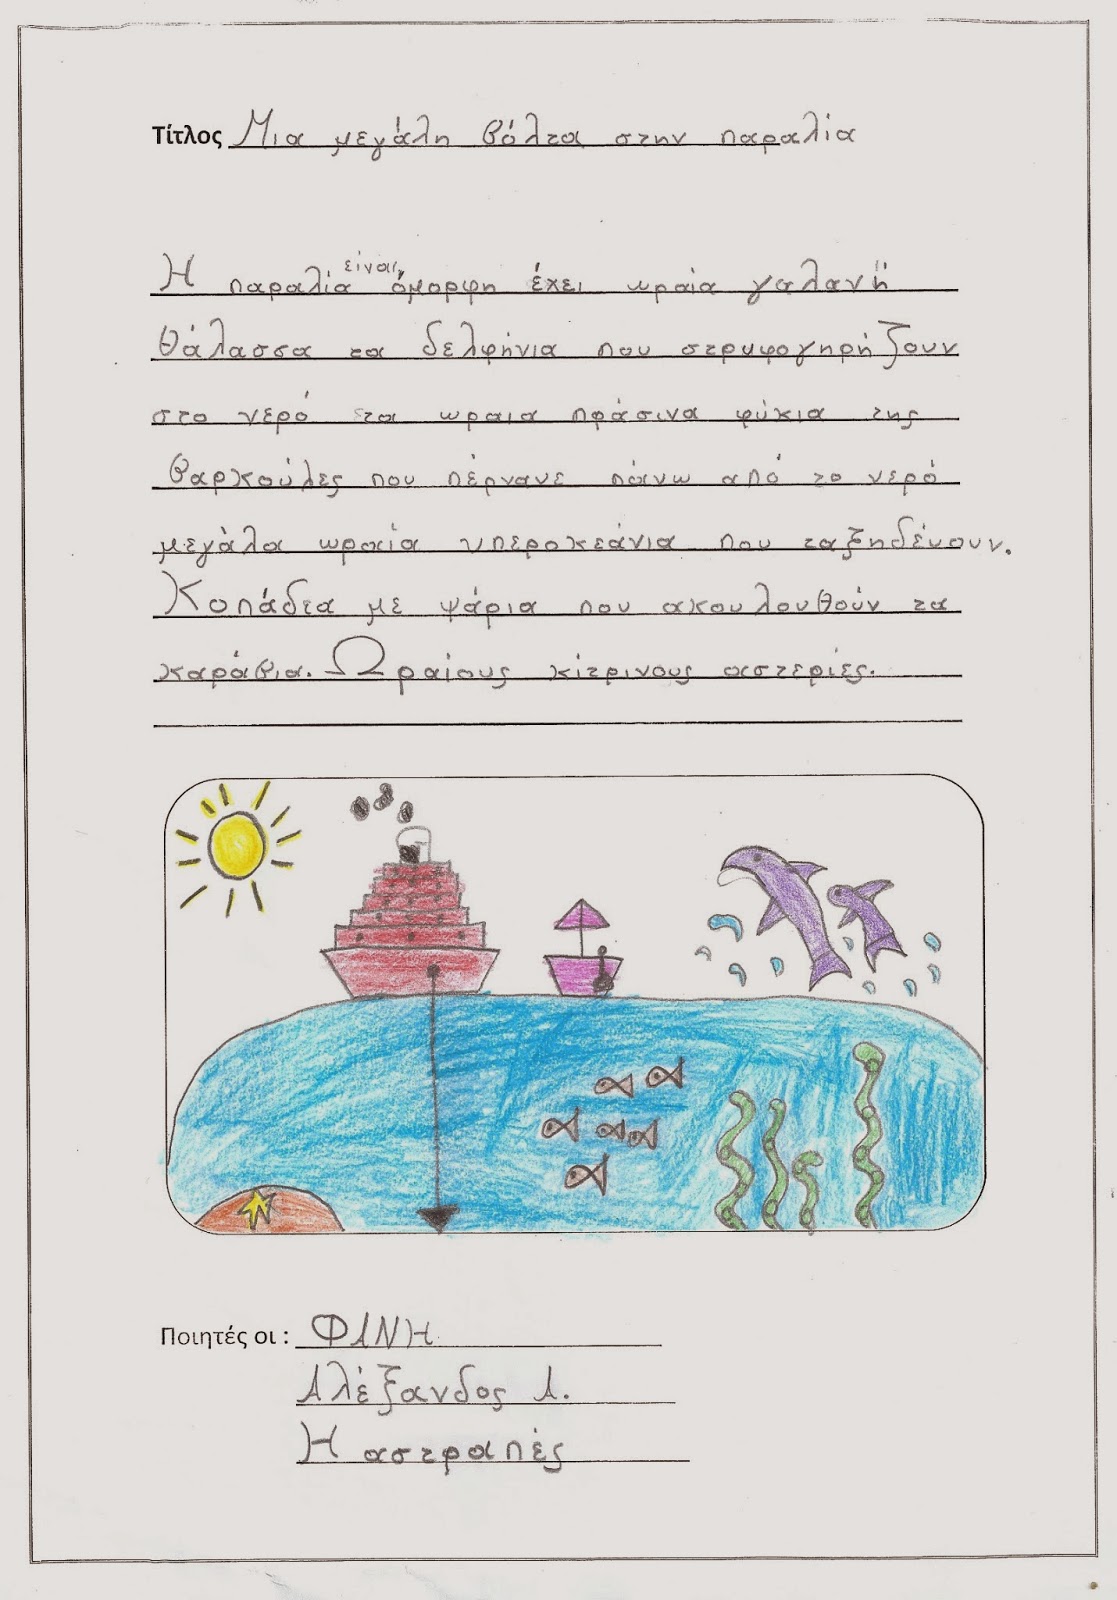 Τίτλος Μια μεγάλη βόλτα στην παραλία
Η παραλία είναι όμορφη έχει ωραία γαλανή
θάλασσα τα δελφήνια που στρυφογηρήζουν
στο νερό τα ωραια πράσινα φύκια της
βαρκούλες που πέρνανε πάνω από το νερό
μεγάλα ωραία υπεροκεάνια που ταξηδέυουν.
Κοπάδια με ψάρια που ακουλουθούν τα
καράβια. Ωραίους κίτρινους αστερίες.
Ποιητές οι : ΦΑΝΗ
Αλέξανδος Α.
Η αστραπές